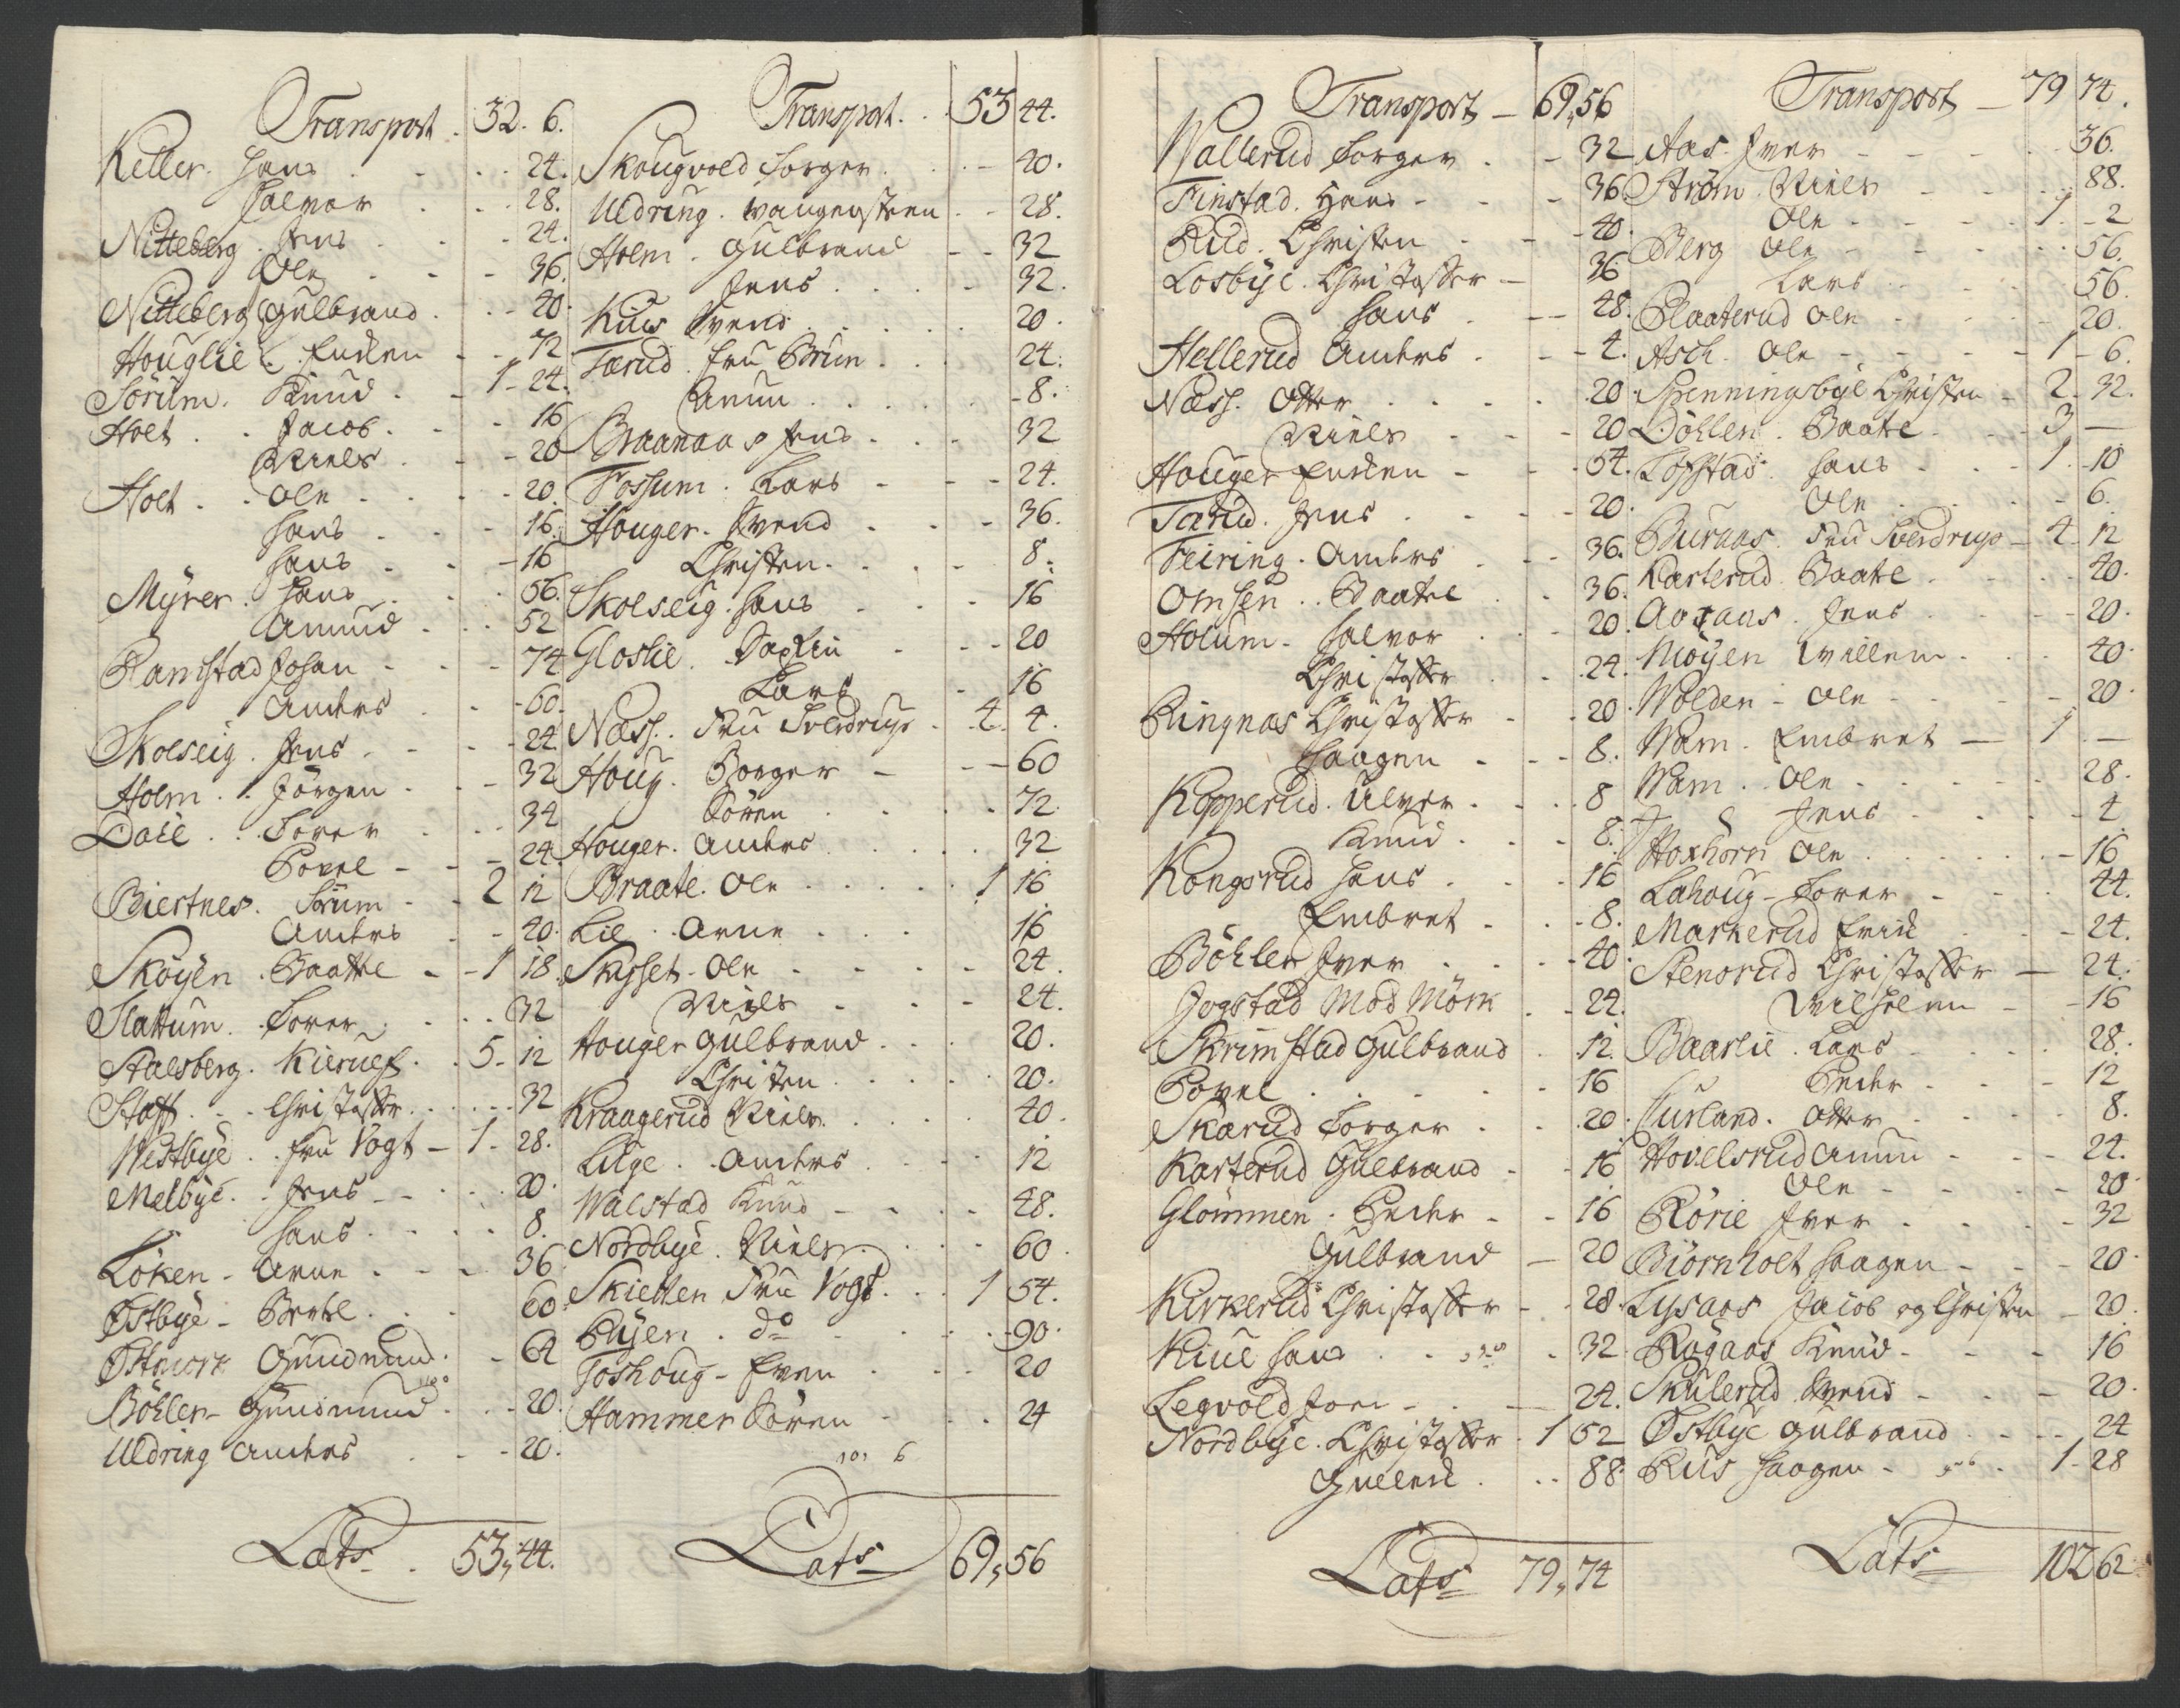 Transport . 32. 6.
Keller. Hans . . . 24.
Halvor . . . 28.
Nitteberg. Jens . . . 24.
Ole . . . 36.
Nitteberg Gulbrand . . . 40.
Houglie . Enden - 72
Sörum. Knud . - 1 - 24.
Holt . . Jacob . - 16
Niels . - 20
Holt . . Ole . . . 20.
Hans . . . 16.
Hans . . - 16
Myrer. Hans . . 56.
Amund . . . 52
Ramstad Johan - - - 74
Anders . - 60.
Skolseig. Jens . - - 24
Holm . . Jörgen . . - 32
Dale . . Torer . . . 34
Povel - - - 24.
Biertnes. Sörum - - 2 12
Anders - - 40.
Skøyen . Baatte - - 1 18.
Slattum. . Torer . . . 32
Stalsberg. Kierulf . . 5 - 12
Staff . . - Christoffer . . . 32
Westbye . . Fru Vogt - 1 - 28.
Melbye . . Jens - - . . 20.
Hans . . . 8.
Löken - Arne . - - 36
Østbye - Bertel . . . 60.
Østmork Gundmund . - 64
Böhler - Gundmund . . - 20.
Uldring Anders . . - 20.
Lats . 53,, 44.
Transport . . 53 44.
Skougvold Torger . . - 40.
Uldring. Wangensteen - - 28.
Holm . Gulbrand - - 32
Jens . . . - 32.
Kuus Svend . . . 20.
Tærud . Fru Brun . . . 24.
Amun . . . - 8.
Braanaas Jens . . - 32
Fossum . Lars - - - 24.
Houger. Svend . . - 36.
Christen . . . - 8.
Skolseig. Hans . . - 16
Gloslie . . . - - 20
Lars - 16
Næss . Fru Sverdrup - 4. 4.
Houg. Borger - - - 60
Sören . . . 72.
Houger. Anders . . . 32
Braate. Ole . . . 1 16
Lie . . Arne . . . 16
Skysset - Ole - - - 24.
Niels - - - 24.
Houger Gulbrand . . . 20.
Christen . . . 20.
Kraagerud Niels . . . 40.
Lilge . . Anders . . - 12
Walstad Knud - . . - 48.
Nordbye . Niels . . . 60.
Skietten Fru Vogt . . . 1 54.
Eyen . do . . . - 90.
Toshoug - Even . - - 20
Hammer Sören - - . 24
101 6
Lats 69,, 56
Transport - 69,, 56
Wallerud Torger . - 32
Finstad. Hans - - - 36
Rud. Christen - - - 40.
Losbye. Christoffer - 36
Hans . - - 48.
Hellerud Anders . - - 4.
Næss. Otter . . . . 20
Niels - - - 20
Houger Enden - - - 54.
Tærud. Jens . . . - 20.
Feiring. Anders . - - 36.
Omsen . . Baatel . . 36.
Holum - Halvor . . - 20.
Christoffer . . . 24.
Ringnæs Christoffer - - 20
Haagen - . - 8.
Kopperud. Ulver . . . . 8
Knud . . - 8.
Kongsrud Hans . . - 16
Embret - . - 8.
Böhler Iver . . . . 40.
Gogstad Mod Mörk . - 24.
Skrimstad Gulbrand . 12.
Povel . . . - 16
Skærud Torger . . . 20.
Karterud Gulbrand - - 16
Glommen . Peder - - 16
Gulbrand - 20
Kirkerud Christoffer - - 28.
Kiul Hans . . - . 32.
Legvold Joen - . . - 24.
Nordbye. Christoffer . 1 52
Gulleck . . . 88.
Lats 79,, 74
Transport - 79 74.
Aas. Iver - - - . 36.
Ström. Niels - - . . 88.
Ole - - - . 1 - 2
Berg Ole - - - . 56.
Lars . . . 56.
Plaaterud Ole . . . 20.
Asch. Ole - - - - 1 - 6.
Spenningsbye Christen - 2 . 32.
Döhlen . Baatel - . - 3 -
Lofstad. Hans . - . 1. - 10
Ole . . . - 6.
Buraas . Fru Sverdrup - 4 12
Karterud. Baatel . . . 40.
Aoraas. Jens . . - 20.
Moyen Willem . . . 40.
Wolden - Ole - - - 20.
Wam . Embret - 1 . -
Wam . . Ole . . . 28.
Jens . . . 4
Hoxhorn Ole . . . - 16
Lahoug - Torer - . . 44.
Markerud Erich . . - 24.
Stenorud Christoffer - 24.
Wilhelm - - 16
Baarlie . Lars - - . 28.
Peder . . . 12
Curland. Otter . . . 8.
Hovelsrud Amun - - - 24.
Ole - - - - 20.
Rörie Iver . . - 32
Biörnholt Haagen - - - 20.
Lysaas Jacob og Christen - 20.
Rogaas Knud - - - 16
Skulerud Svend - - - 20.
Østbye Gulbrand . . - - 24
Rus Haagen - . 1 - 28
Lats 102 62